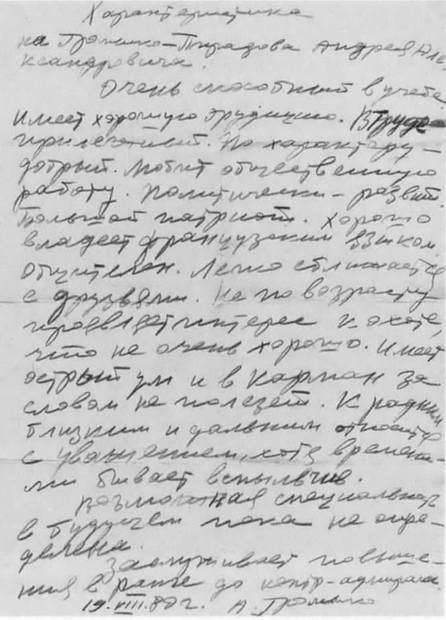 Характеристика
на Громыко-Пирадова Андрея Але
ксандровича.
Очень способный в учебе
Имеет хорошую эрудицию. В труде
прилежный. По характеру –
добрый. Любит общественную
работу. Политически – развит.
Большой патриот. Хорошо
владеет французским языком.
Общителен. Легко сближается
с друзьями. Не по возрасту
проявляет интерес к охоте
что не очень хорошо. Имеет
острый ум и в карман за
словом не полезет. К родным
близким и дальним относится
с уважением, хотя времена-
ми бывает вспыльчив.
Возможная специальность
в будущем пока не опре-
делена.
Заслуживает повыше-
ния в ранге до контр-адмирала.
19.VIII.80 г. А Громыко